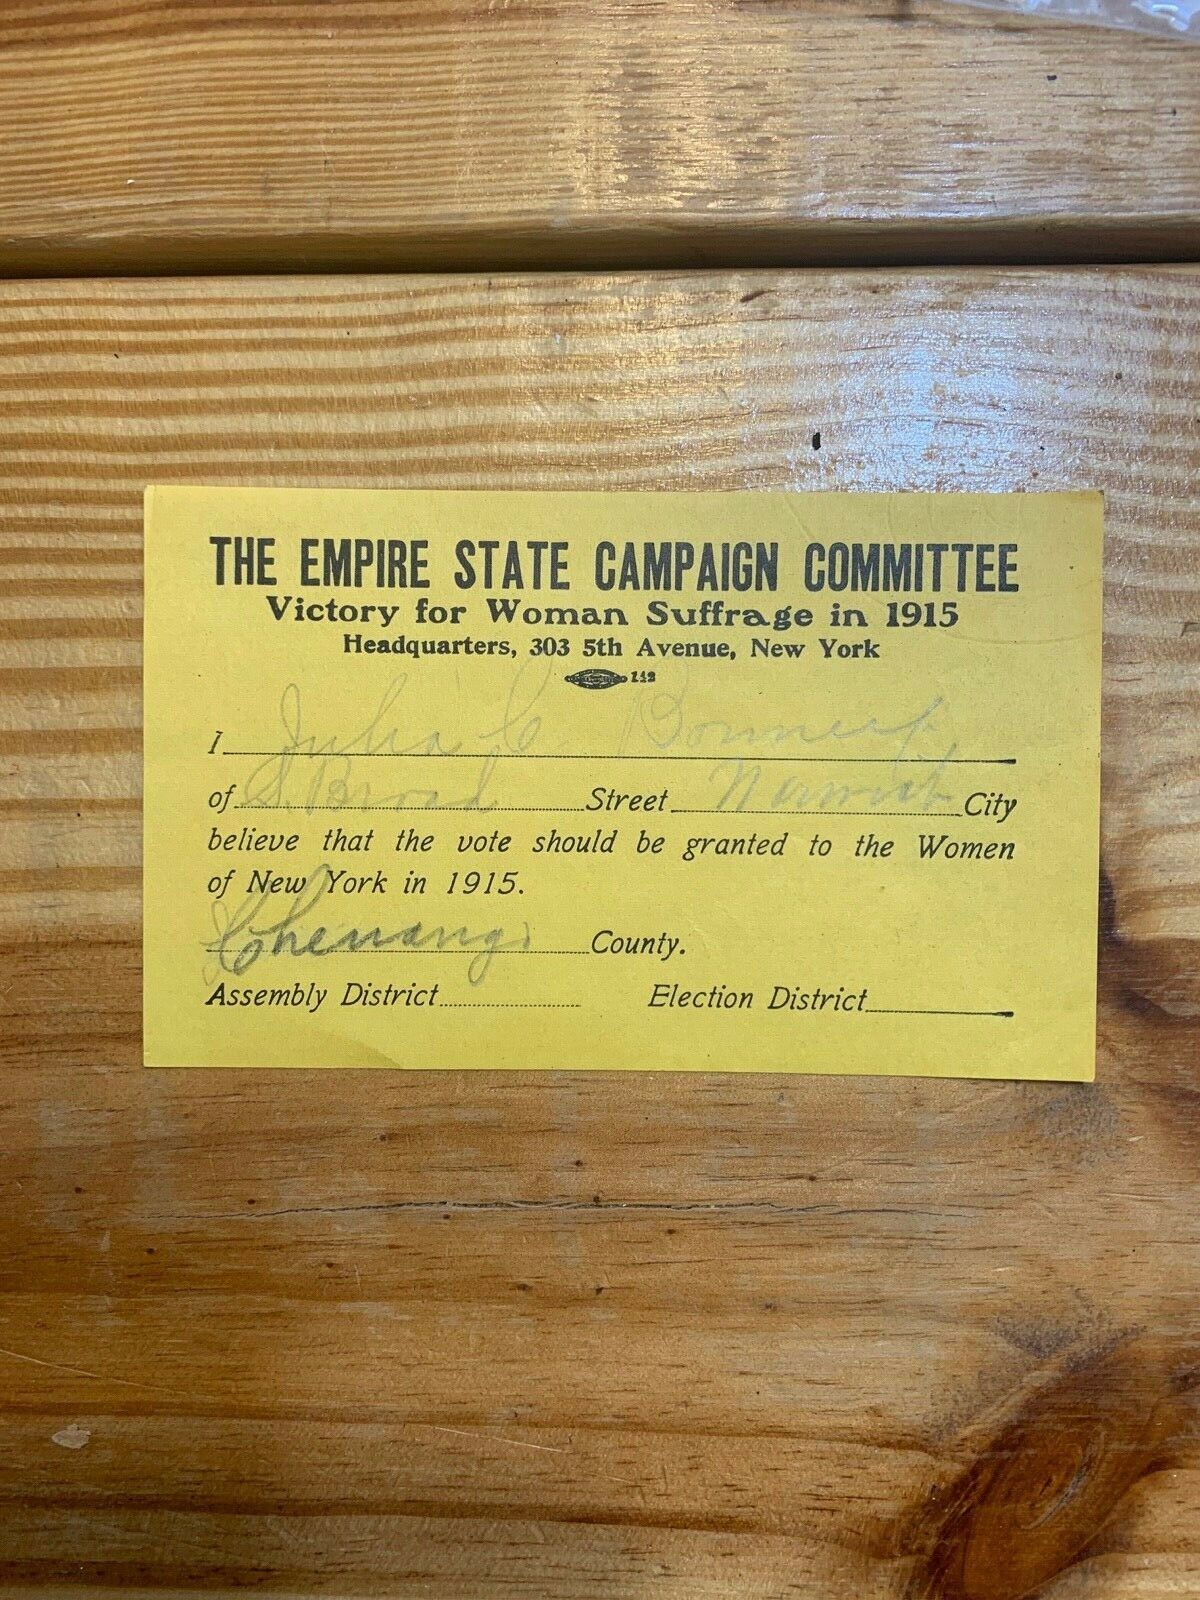 THE EMPIRE STATE CAMPAIGN COMMITTEE
Victory for Woman Suffrage in 1915
Headquarters, 303 5th Avenue, New York
142
I Julia C
of S. Broad Street Norwich City
believe that the vote should be granted to the Women
of New York in 1915.
Chenango County.
Assembly District Election District